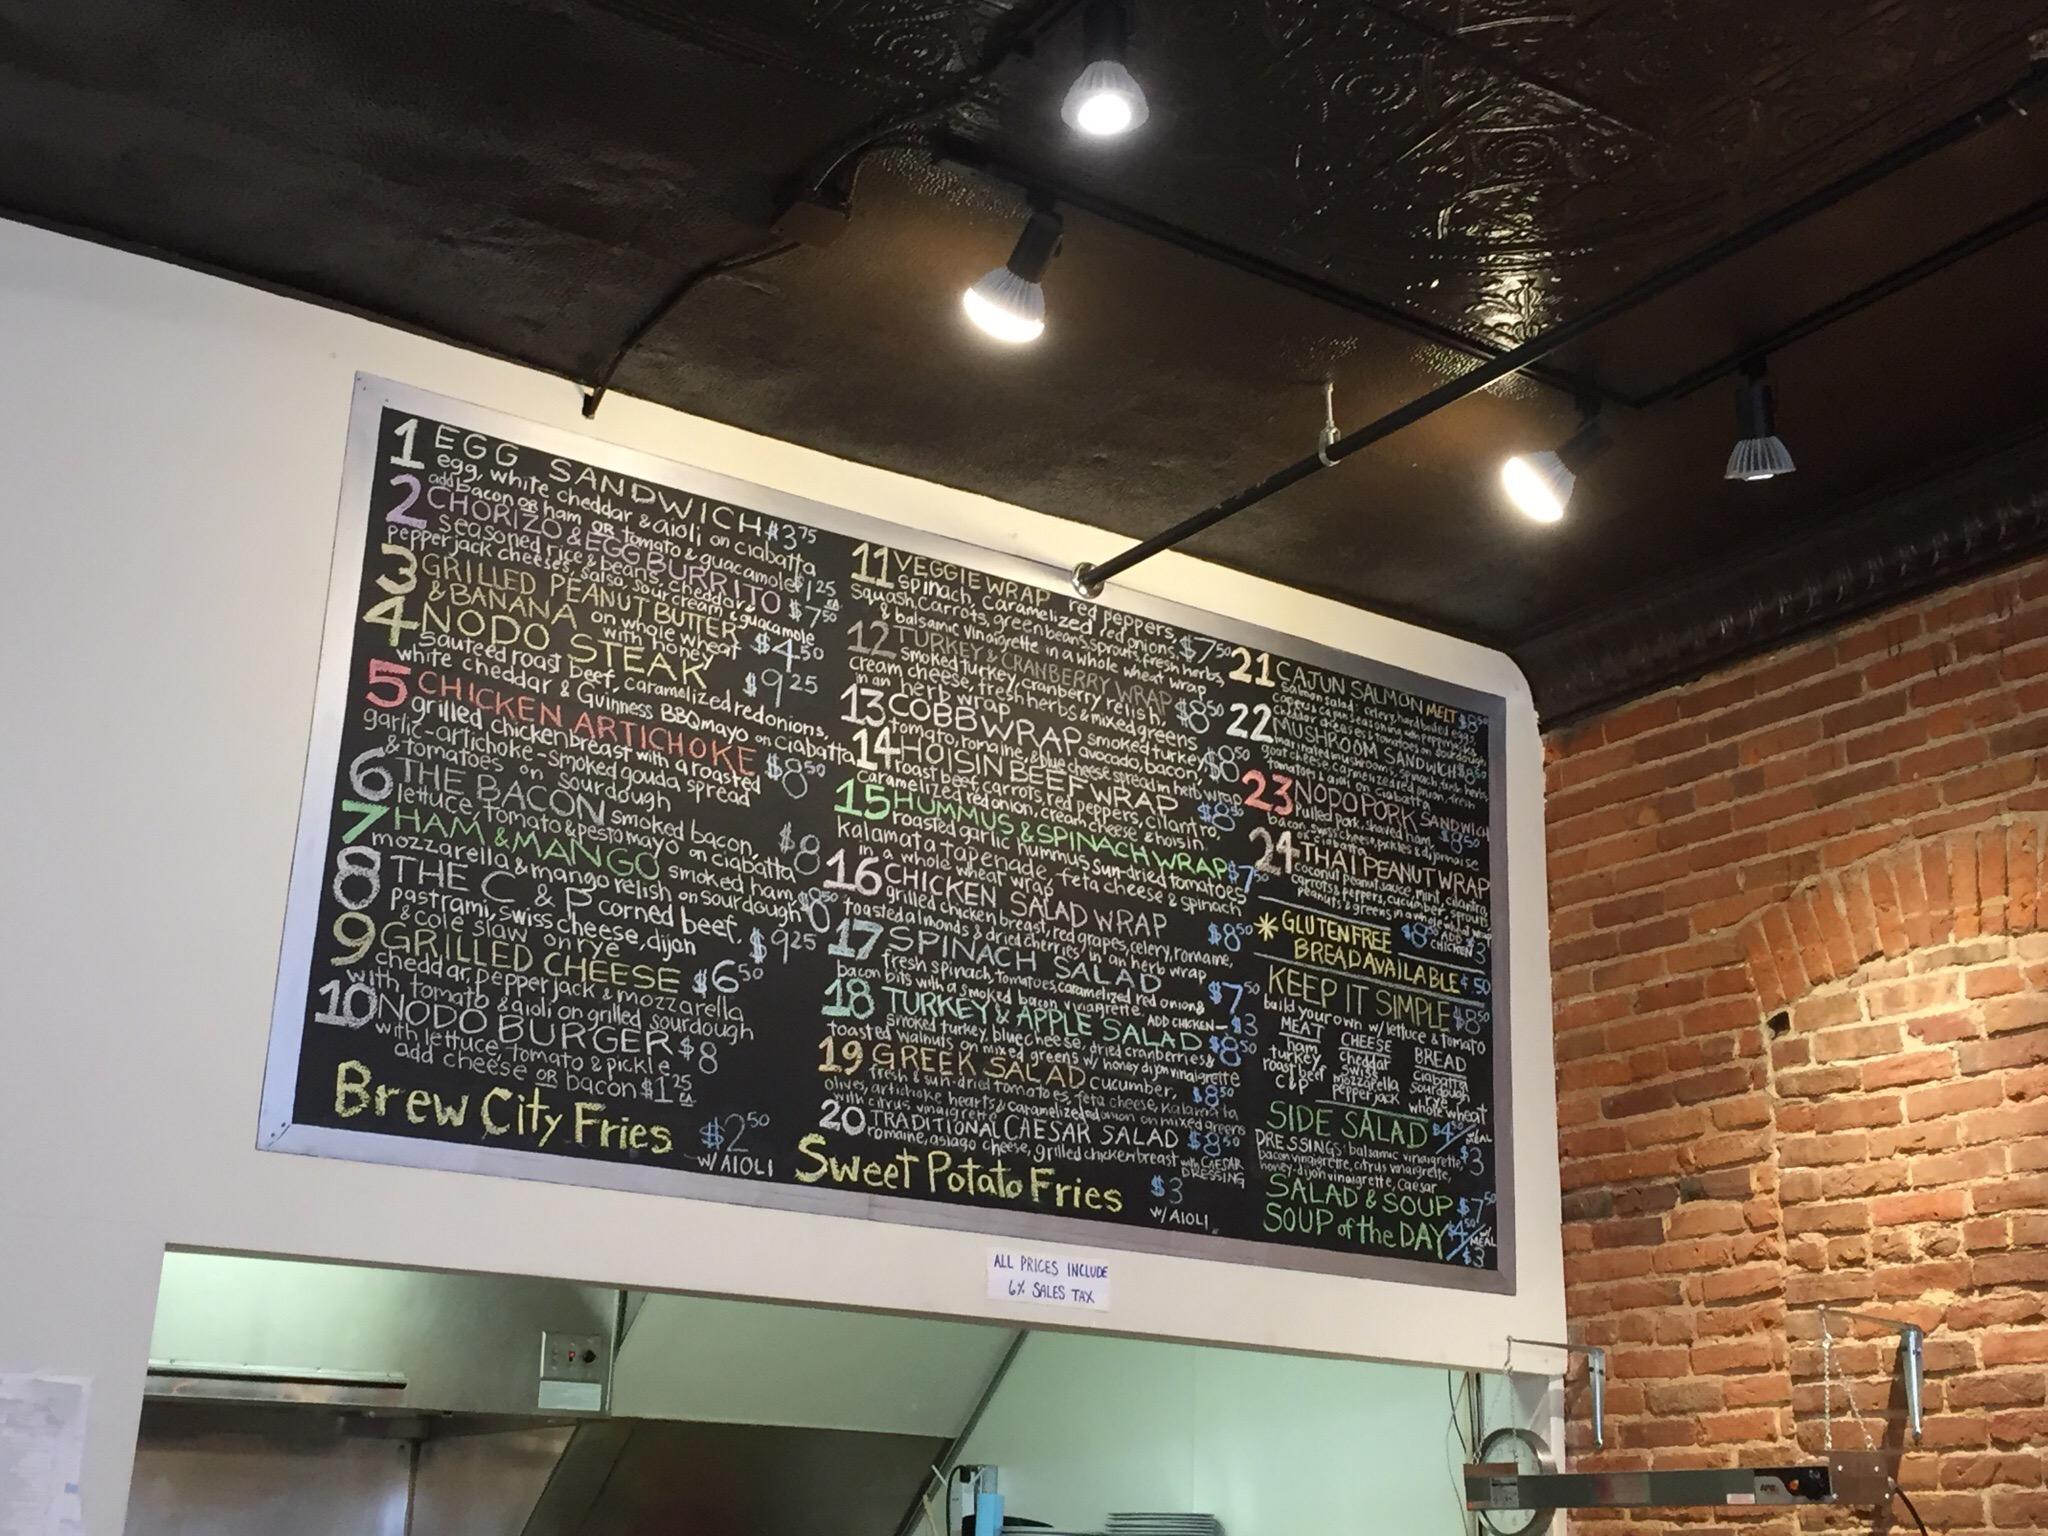 1 EGG SANDWICH $3.75
egg, white cheddar & aioli on ciabatta
add bacon OR ham OR tomato & guacamole $1.25 ea
2 CHORIZO & EGG BURRITO $7.50
seasoned rice & beans, cheddar &
pepperjack cheeses, salsa, sour cream & guacamole
3 GRILLED PEANUT BUTTER
& BANANA on whole wheat with honey $4.50
4 NODO STEAK $9.25
sauteed roast beef, caramelized red onions,
white cheddar & Guinness BBQ mayo on ciabatta
5 CHICKEN ARTICHOKE $8.50
grilled chicken breast with a roasted
garlic-artichoke-smoked gouda spread
& tomatoes on sourdough
6 THE BACON smoked bacon, $8
lettuce, tomato & pesto mayo on ciabatta
7 HAM & MANGO smoked ham, $8.50
mozzarella & mango relish on sourdough
8 THE C & P corned beef,
pastrami, swiss cheese, dijon $9.25
& cole slaw on rye
9 GRILLED CHEESE $6.50
cheddar, pepperjack & mozzarella
with tomato & aioli on grilled sourdough
10 NODO BURGER $8
with lettuce, tomato & pickle
add cheese OR bacon $1.25 ea
Brew City Fries $2.50
W/ AIOLI
11 VEGGIE WRAP red peppers,
spinach, caramelized red onions, $7.50
squash, carrots, green beans, sprouts, fresh herbs,
& balsamic vinaigrette in a whole wheat wrap
12 TURKEY & CRANBERRY WRAP
smoked turkey, cranberry relish, $8.50
cream cheese, fresh herbs & mixed greens
in an herb wrap
13 COBB WRAP smoked turkey, $8.50
tomato, romaine, avocado, bacon,
& blue cheese spread in herb wrap
14 HOISIN BEEF WRAP $8.50
roast beef, carrots, red peppers, cilantro,
caramelized red onion, cream cheese & hoisin
15 HUMMUS & SPINACH WRAP $7.50
roasted garlic hummus, sun-dried tomatoes,
kalamata tapenade, feta cheese & spinach
in a whole wheat wrap
16 CHICKEN SALAD WRAP $8.50
grilled chicken breast, red grapes, celery, romaine,
toasted almonds & dried cherries in an herb wrap
17 SPINACH SALAD $7.50
fresh spinach, tomatoes, caramelized red onion &
bacon bits with a smoked bacon vinaigrette. ADD CHICKEN - $3
18 TURKEY & APPLE SALAD $8.50
smoked turkey, blue cheese, dried cranberries &
toasted walnuts on mixed greens w/ honey dijon vinaigrette
19 GREEK SALAD cucumber, $8.50
fresh & sun-dried tomatoes, feta cheese, kalamata
olives, artichoke hearts & caramelized red onion on mixed greens
with citrus vinaigrette
20 TRADITIONAL CAESAR SALAD $8.50
romaine, asiago cheese, grilled chicken breast with CAESAR DRESSING
Sweet Potato Fries $3
W/ AIOLI
21 CAJUN SALMON MELT $8.50
salmon salad: celery, hard boiled eggs
capers, cajun seasoning with pepperjack,
cheddar cheeses & tomatoes on sourdough
22 MUSHROOM SANDWICH $8.50
marinated mushrooms, spinach, fresh herbs,
goat cheese, caramelized red onion,
tomatoes & aioli on ciabatta
23 NODO PORK SANDWICH $8.50
Pulled pork, shaved ham,
bacon, swiss cheese, pickles & dijonnaise
on ciabatta
24 THAI PEANUT WRAP
coconut peanut sauce, mint, cilantro,
carrots, peppers, cucumber, sprouts,
peanuts & greens in a whole wheat wrap
$8.50 ADD CHICKEN $3
* GLUTEN FREE
BREAD AVAILABLE $.50
KEEP IT SIMPLE $8.50
build your own w/ lettuce & tomato
MEAT CHEESE BREAD
ham cheddar ciabatta
turkey swiss sourdough
roast beef mozzarella rye
pepperjack whole wheat
SIDE SALAD $4.50/w/ MEAL $3
DRESSINGS: balsamic vinaigrette,
bacon vinaigrette, citrus vinaigrette,
honey-dijon vinaigrette, caesar
SALAD & SOUP $7.50
SOUP of the DAY $4.50/w/ MEAL $3
ALL PRICES INCLUDE
6% SALES TAX